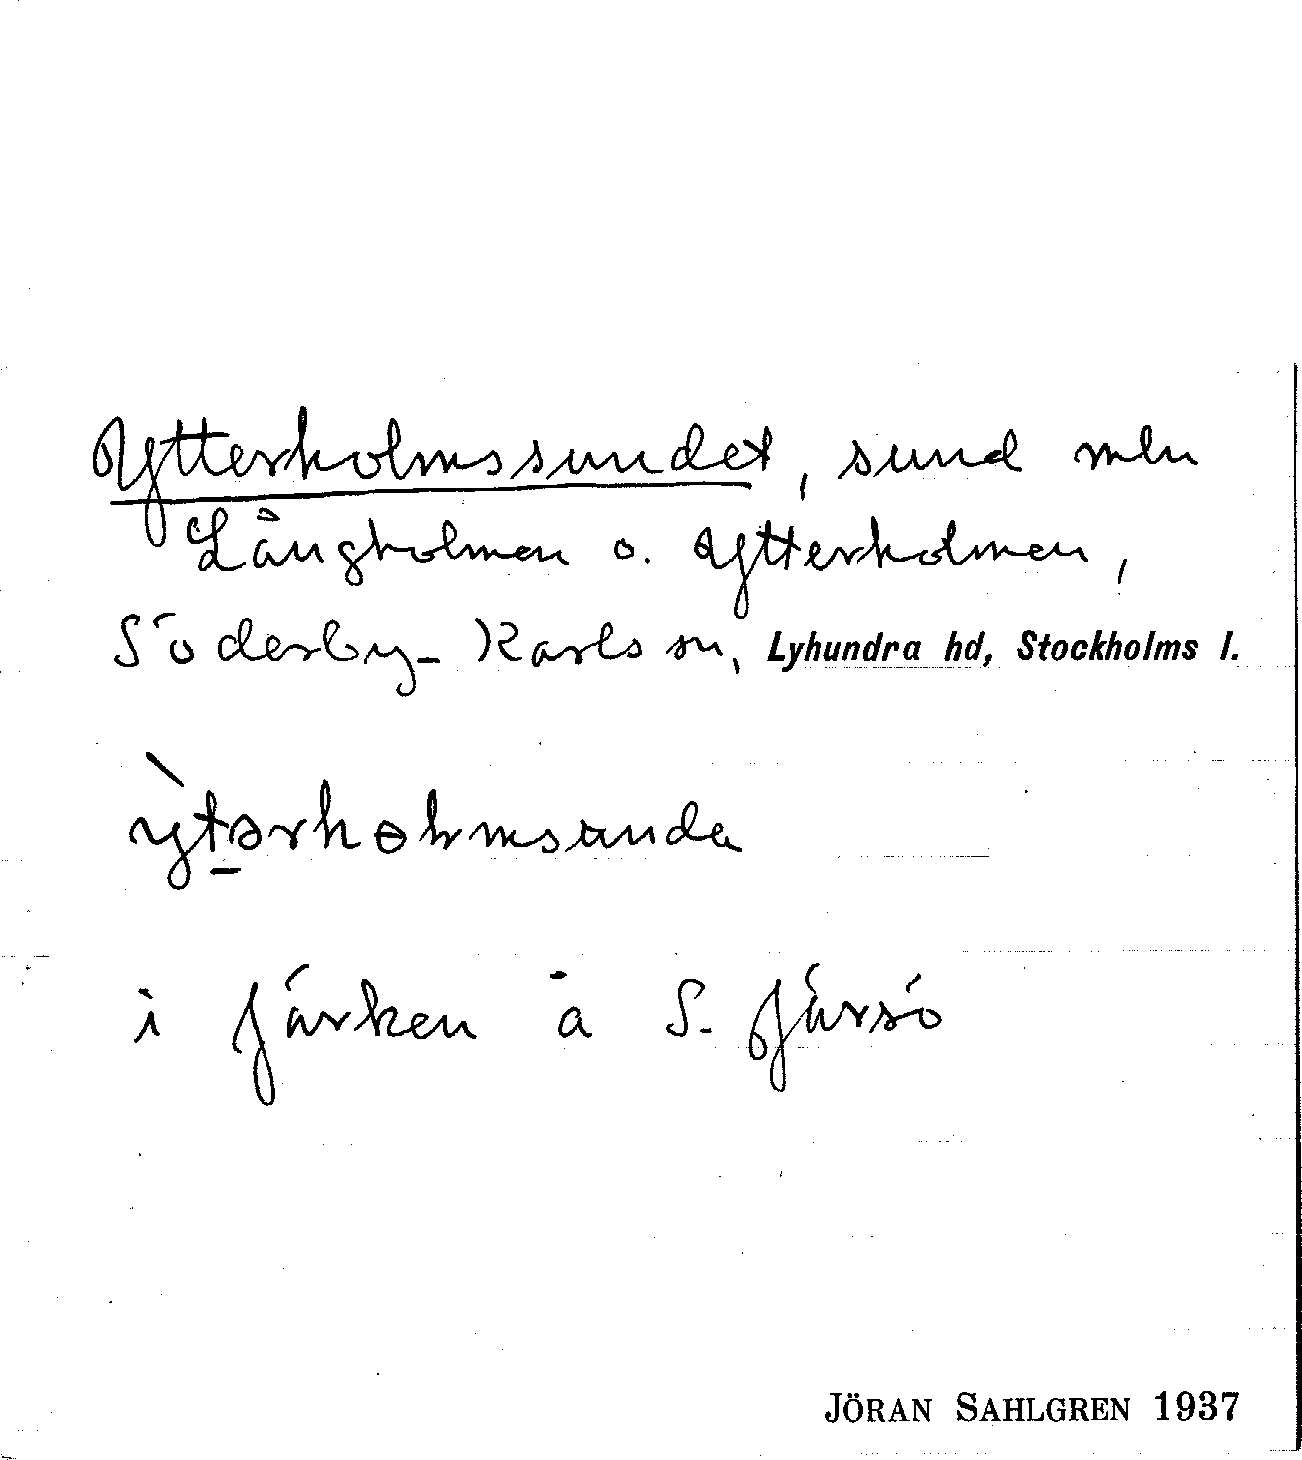 Ytterholmssundet, sund mln
Långholmen o. Ytterholmen,
Söderby-Karls sn, Lyhundra hd, Stockholms l.
ỳtərhɵlmsunda
i Järken å S. Järsö
JÖRAN SAHLGREN 1937